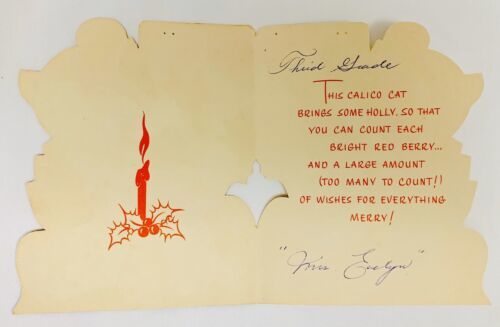 Third Grade
THIS CALICO CAT
BRINGS SOME HOLLY, SO THAT
YOU CAN COUNT EACH
BRIGHT RED BERRY...
AND A LARGE AMOUNT
(TOO MANY TO COUNT!)
OF WISHES FOR EVERYTHING
MERRY!
"Miss Evelyn"